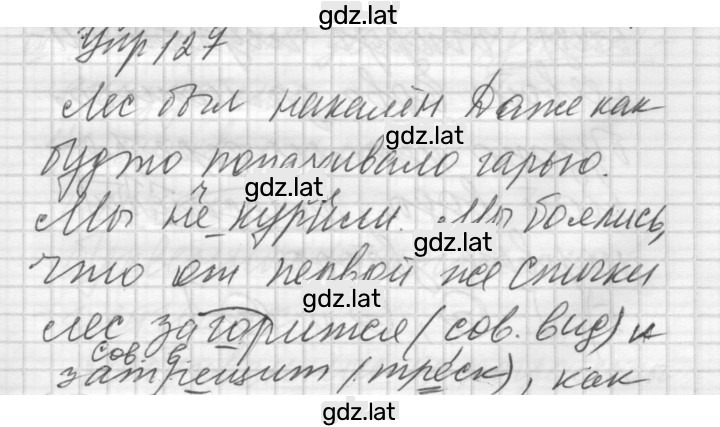 gdz.lat
Упр 127
Лес был накалён Даже как
gdz.lat
будто попахивало гарью.
gdz.lat
Мы не курили. Мы боялись,
gdz.lat
что от первой же спички
gdz.lat
лес загорится (сов. вид) и
сов. в
затрещит (треск), как
gdz.lat